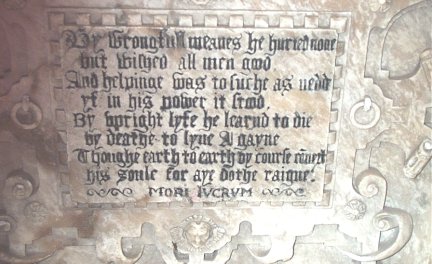 By wrongfull meanes he hurted none
but wished all men good
And helpinge was to suche as nedd
yf in his power it stood,
By vpright lyfe he learnd to die
by deathe to lyue A gayne
Thoughe earth to earth by course
his soule for aye dothe raigne.
MORI LVCRVM